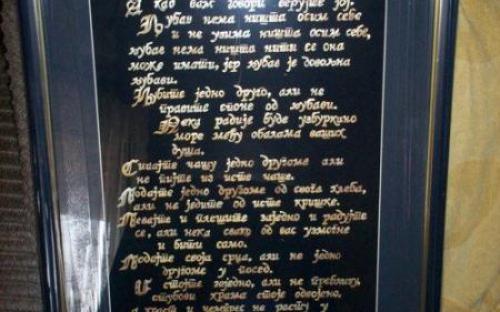 А кад вам говори верујте јој.
Љубав нема ништа осим себе
и не узима ништа осим себе,
љубав нема ништа нити се она
може имати, јер љубав је довољна
љубави.
Љубите једно друго, али не
правите споне од љубави.
Нека радије буде узбуркано
море међу обалама ваших
душа.
Сипајте чашу једно другоме али
не пијте из исте чаше.
Подајте једно другоме од свога хлеба,
али не једите од исте кришке.
Певајте и плешите заједно и радујте
се, али нека свако од вас узмогне
и бити само.
Подајте своја срца, али не једно
другоме у посед.
И стојте заједно, али не преблизу,
стубови храма стоје одвојено,
а храст и чемпрес не расту у